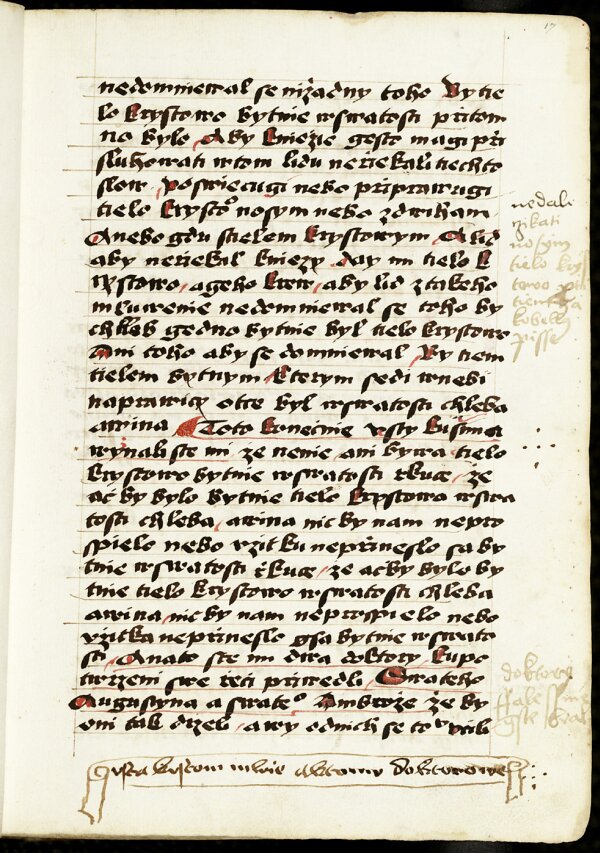 17
nedomniewal se nizadny toho By tie
lo krystowo bytnie wswatosti pritom
no bylo Aby kniezie gesto magi pri
sluhowati wtom lidu neriekali tiechto
slow poswiecugi nebo priprawugi
tielo krysto nosym nebo zdwiham
Anebo gdu stielem krystowym A lid
aby neriekal kniezy day mi tielo k
rystowo ageho krew aby lid ztakeho
mluwenie nedomniewal se toho by
chleb gedno bytnie byl tielo krystowo
Ani toho aby se domniewal By tiem
tielem bytnym kterym sedi wnebi
naprawicy otce byl wswatosti chleba
awina Toto konecnie vsty
wynali ste mi ze nenie ani bywa tielo
krystowo bytnie wswatosti rkuce ze
ac by bylo bytnie tielo krystowo wswa
tosti chleba awina nic by nam nepro
spielo nebo vzitku neprineslo sa by
tnie wswatosti rkuce ze ac by bylo by
tnie tielo krystowo wswatosti chleba
awina nic by nam neprospielo nebo
vzitka neprineslo gsa bytnie wswato
sti Anato ste mi dwa doktory kupo
twrzeni swe reci priwedli Swateho
Augustyna a swate Ambroze ze by
oni tak drzeli awy odnich se to
nedali
rzikati
nosym
tielo
doktorowe
doktorowe